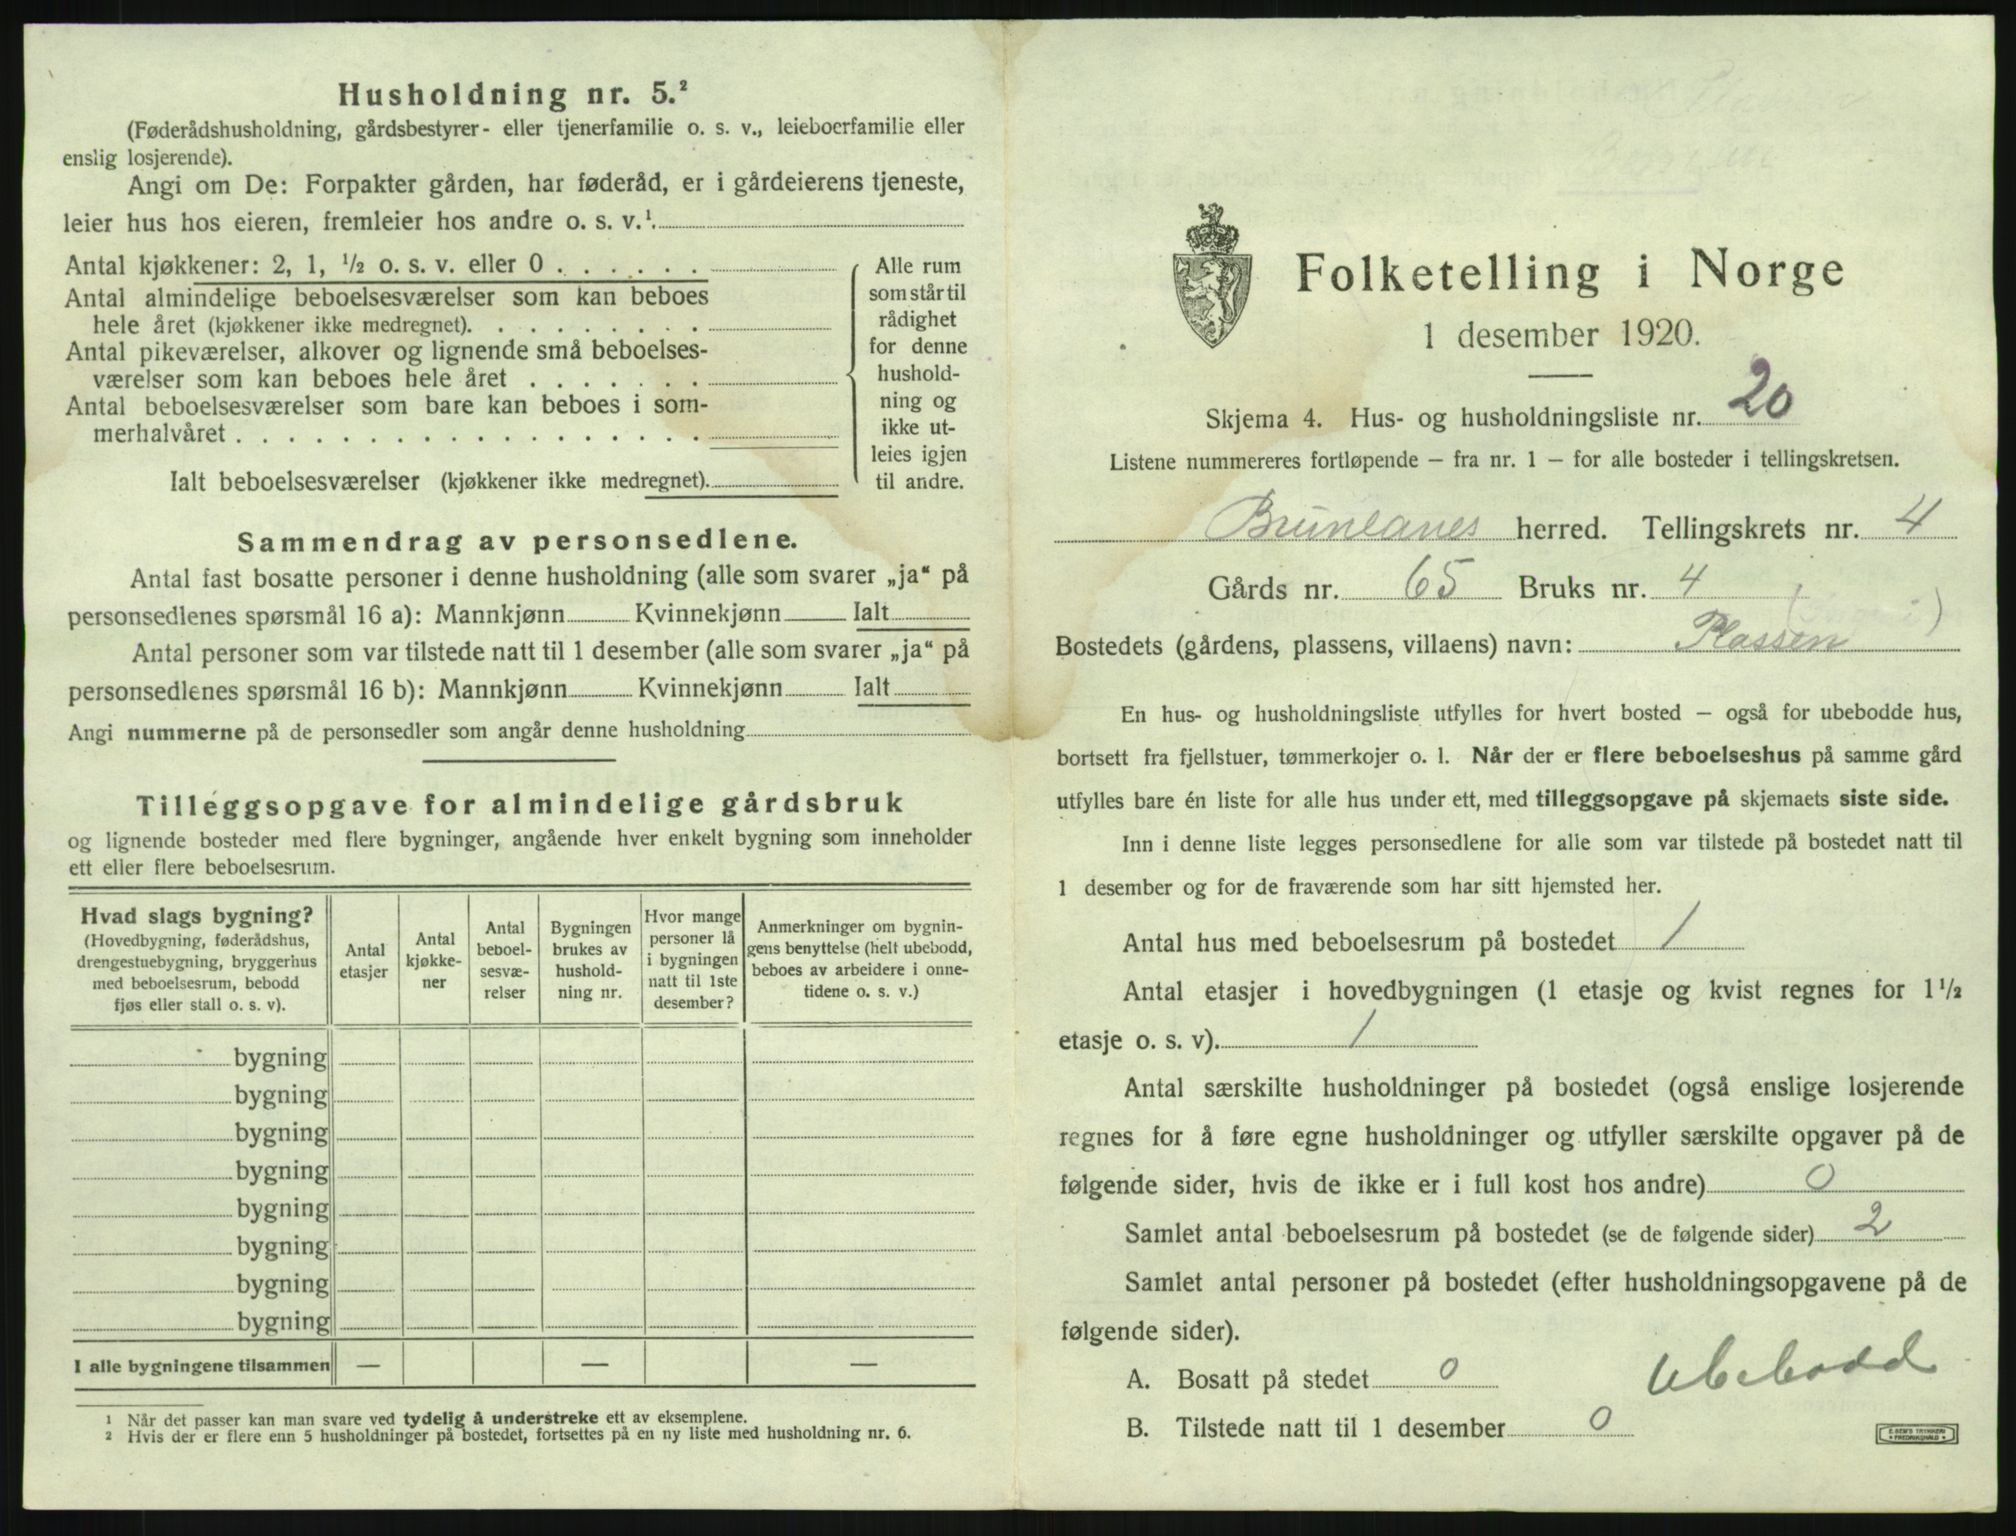 Husholdning nr. 5.²
(Føderådshusholdning, gårdsbestyrer- eller tjenerfamilie o. s. v., leieboerfamilie eller
enslig losjerende).
Angi om De: Forpakter gården, har føderåd, er i gårdeierens tjeneste,
leier hus hos eieren, fremleier hos andre o. s. v.¹
Antal kjøkkener: 2, 1, ½ o. s. v. eller 0 . . . . . .
Antal almindelige beboelsesværelser som kan beboes
hele året (kjøkkener ikke medregnet). . . . . . . . .
Antal pikeværelser, alkover og lignende små beboelses-
værelser som kan beboes hele året . . . . . . .
Antal beboelsesværelser som bare kan beboes i som-
merhalvåret . . . . . . . . . . . . . . . . . .
Ialt beboelsesværelser (kjøkkener ikke medregnet).
Alle rum
som står til
rådighet
for denne
hushold-
ning og
ikke ut-
leies igjen
til andre.
Sammendrag av personsedlene.
Antal fast bosatte personer i denne husholdning (alle som svarer „ja“ på
personsedlenes spørsmål 16 a): Mannkjønn Kvinnekjønn Ialt
Antal personer som var tilstede natt til 1 desember (alle som svarer „ja“ på
personsedlenes spørsmål 16 b): Mannkjønn Kvinnekjønn Ialt
Angi nummerne på de personsedler som angår denne husholdning
Tilleggsopgave for almindelige gårdsbruk
og lignende bosteder med flere bygninger, angående hver enkelt bygning som inneholder
ett eller flere beboelsesrum.
Hvad slags bygning?
(Hovedbygning, føderådshus,
drengestuebygning, bryggerhus
med beboelsesrum, bebodd
fjøs eller stall o. s. v).
Antal
etasjer
Antal
kjøkke-
ner
Antal
beboel-
sesvæ-
relser
Bygningen
brukes av
hushold-
ning nr.
Hvor mange
personer lå
i bygningen
natt til 1ste
desember?
Anmerkninger om bygnin-
gens benyttelse (helt ubebodd,
beboes av arbeidere i onne-
tidene o. s. v.)
bygning
bygning
bygning
bygning
bygning
bygning
bygning
bygning
I alle bygningene tilsammen — — —
¹ Når det passer kan man svare ved tydelig å understreke ett av eksemplene.
² Hvis der er flere enn 5 husholdninger på bostedet, fortsettes på en ny liste med husholdning nr. 6.
Folketelling i Norge
1 desember 1920.
Skjema 4. Hus- og husholdningsliste nr. 20
Listene nummereres fortløpende — fra nr. 1 — for alle bosteder i tellingskretsen.
Brunlanes herred. Tellingskrets nr. 4
Gårds nr. 65 Bruks nr. 4
Bostedets (gårdens, plassens, villaens) navn: Plassen
En hus- og husholdningsliste utfylles for hvert bosted — også for ubebodde hus,
bortsett fra fjellstuer, tømmerkojer o. l. Når der er flere beboelseshus på samme gård
utfylles bare én liste for alle hus under ett, med tilleggsopgave på skjemaets siste side.
Inn i denne liste legges personsedlene for alle som var tilstede på bostedet natt til
1 desember og for de fraværende som har sitt hjemsted her.
Antal hus med beboelsesrum på bostedet 1
Antal etasjer i hovedbygningen (1 etasje og kvist regnes for 1½
etasje o. s. v). 1
Antal særskilte husholdninger på bostedet (også enslige losjerende
regnes for å føre egne husholdninger og utfyller særskilte opgaver på de
følgende sider, hvis de ikke er i full kost hos andre) 0
Samlet antal beboelsesrum på bostedet (se de følgende sider) 2
Samlet antal personer på bostedet (efter husholdningsopgavene på de
følgende sider).
A. Bosatt på stedet 0 Ubebodd
B. Tilstede natt til 1 desember 0
E. SEM'S TRYKKERI
FREDRIKSHALD